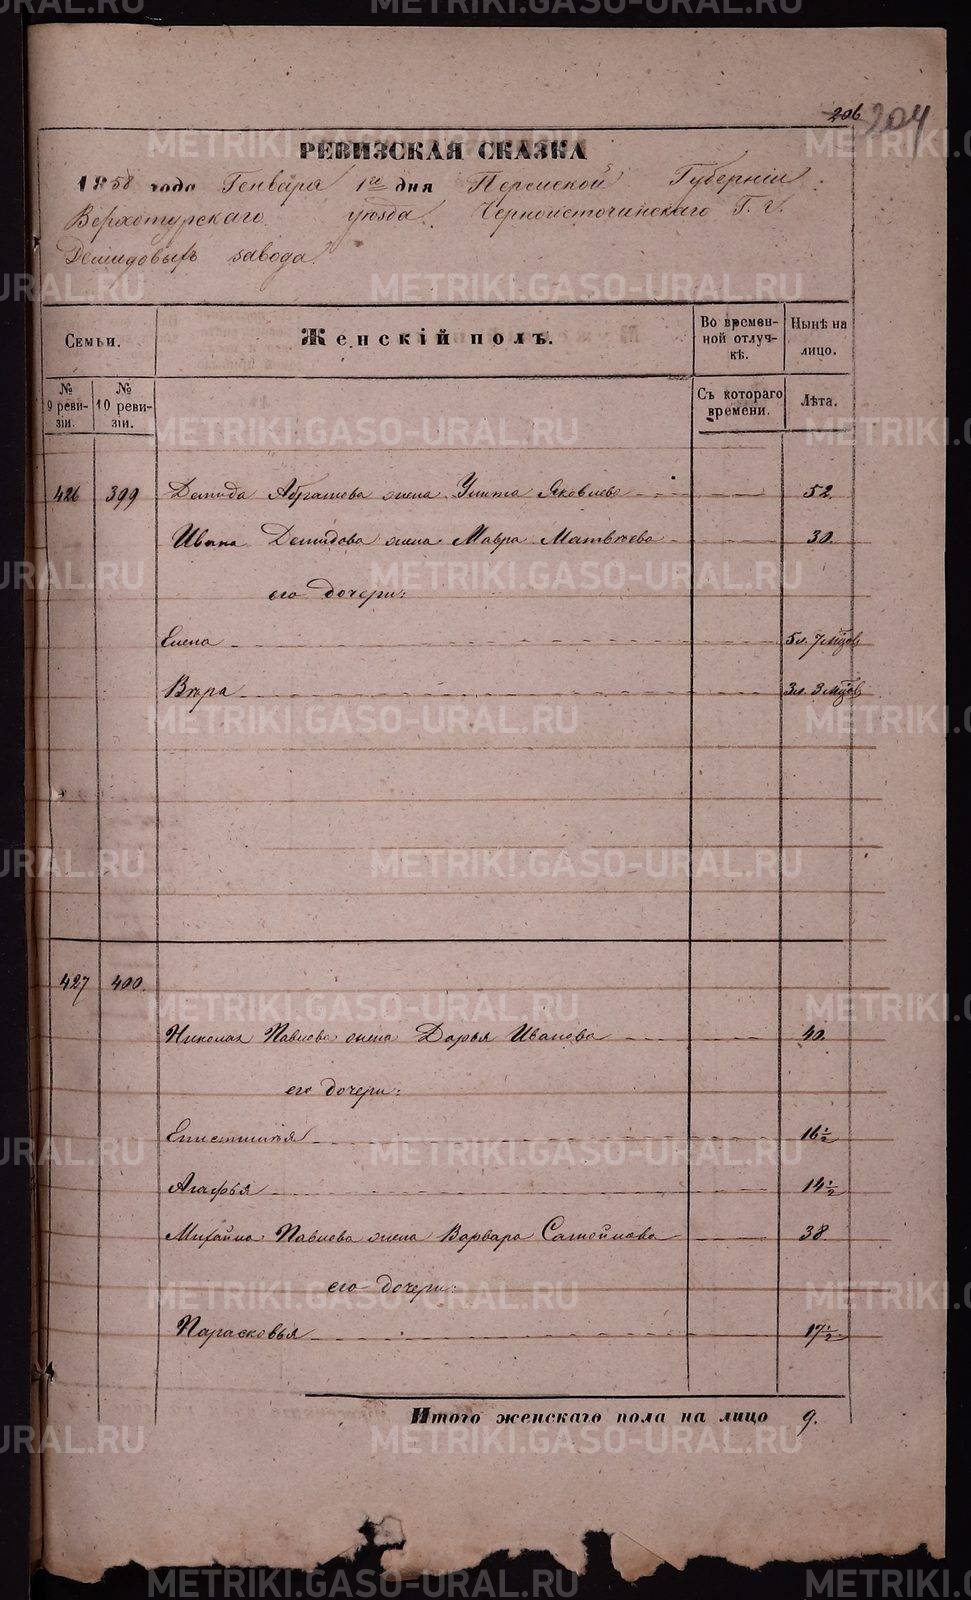 206 204
РЕВИЗСКАЯ СКАЗКА
1858 года Генваря 1го дня Пермской Губернiи
Верхотурскаго уѣзда Черноисточинскаго Г. г.
Демидовыхъ завода.
Семьи.
Женскiй полъ.
Во времен-
ной отлуч-
кѣ.
Нынѣ на
лицо.
№
9 реви-
зiи.
№
10 реви-
зiи.
Съ котораго
времени.
Лѣта.
426 399 Демида Абрамова жена Улита Яковлева 52.
Ивана Демидова жена Мавра Матвѣева 30.
его дочери:
Елена 5 л. 7 мцовъ
Вѣра 3 л. 3 мцовъ
427 400.
Николая Павлова жена Дарья Иванова 40.
его дочери:
Епистимiя 16 1/2
Агафья 14 1/2
Михайла Павлова жена Варвара Самойлова 38
его дочери:
Парасковья 17 1/2
Итого женскаго пола на лицо 9.
METRIKI.GASO-URAL.RU